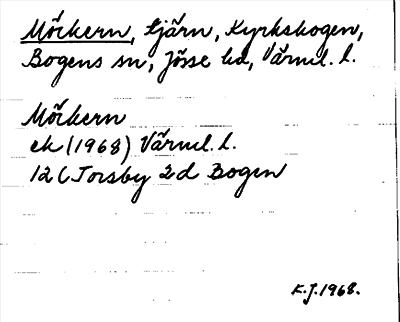 Möckern, tjärn, Kyrkskogen,
Bogens sn, Jösse hd, Värml. l.
Möckern
ek (1968) Värml. l.
12 C Torsby 2d Bogen
K.J. 1968.